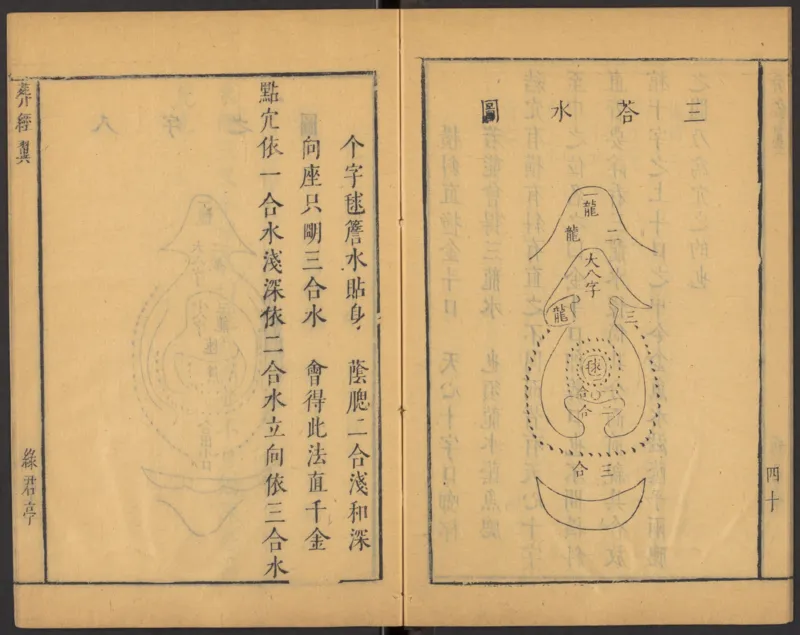 四十
三荅水圖
一龍
二龍
三龍
大八字
毬
一合
二合
三合
个字毬簷水貼身 蔭腮二合淺和深
向座只明三合水 會得此法直千金
點穴依一合水淺深依二合水立向依三合水
葬經翼
綠君亭